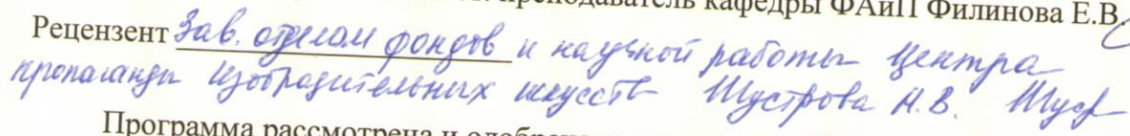 преподаватель кафедры ФАиП Филинова Е.В.
Рецензент Зав. отделом фондов и научной работы Центра
пропаганды изобразительных искусств Шустрова Н.В. Шуст
Программа рассмотрена и одобрена